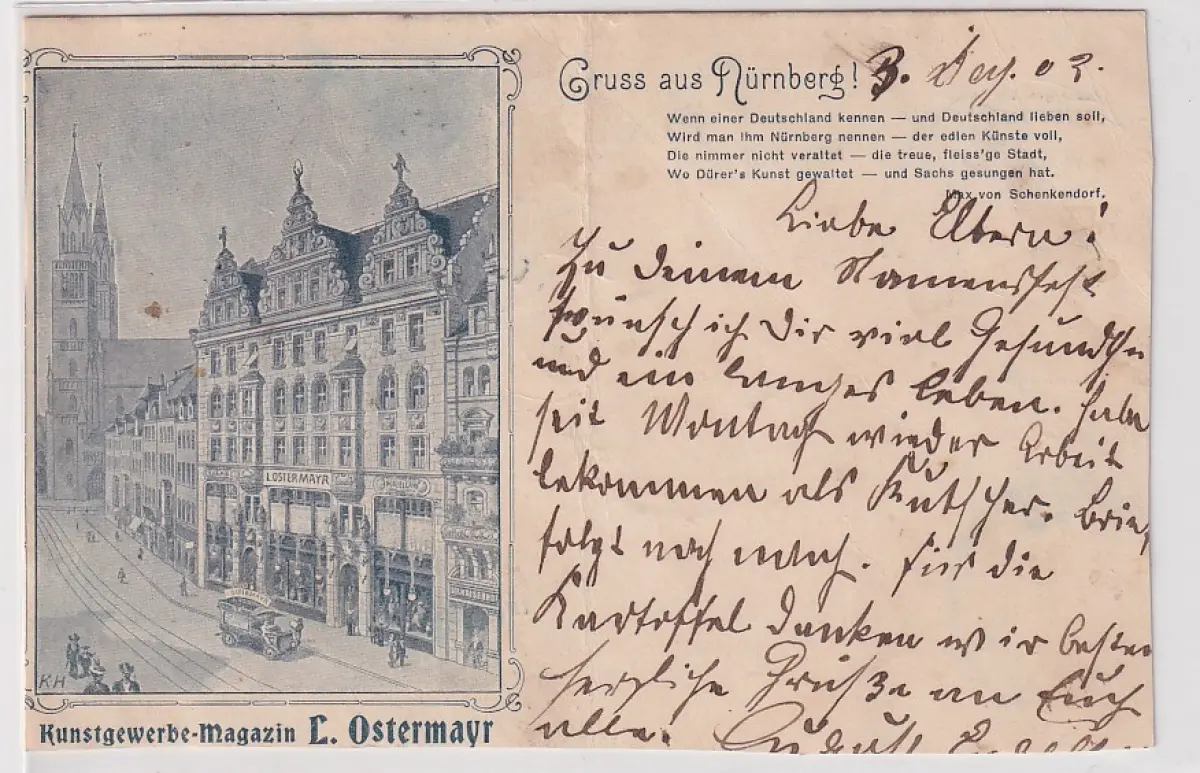 Gruss aus Nürnberg! 3. Dez. 02.
Wenn einer Deutschland kennen — und Deutschland lieben soll,
Wird man ihm Nürnberg nennen — der edlen Künste voll,
Die nimmer nicht veraltet — die treue, fleiss'ge Stadt,
Wo Dürer's Kunst gewaltet — und Sachs gesungen hat.
Max von Schenkendorf.
Liebe Eltern!
Zu Deinem Namensfest
wünsch ich Dir viel
und ein langes Leben. Habe
seit Montag wieder Arbeit
bekommen als Kutscher. Brief
folgt noch nach. Für die
Kartoffel danken wir bestens
herzliche Grüße an Euch
alle. August
L. OSTERMAYR
OSTERMAYR
KH
Kunstgewerbe-Magazin L. Ostermayr